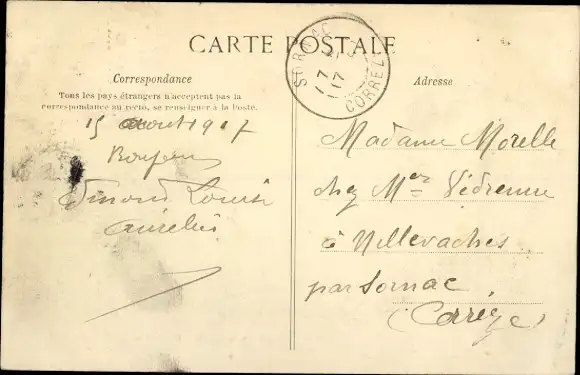 CARTE POSTALE
SORNAC
CORRÈZE
17
17
Correspondance
Tous les pays étrangers n'acceptent pas la
correspondance au recto, se renseigner à la Poste.
15 aout 1917
Bonjour
Louise
Aurélie
Adresse
Madame Morelle
chez Mer Védrenne
à Millevaches
par Sornac
(Corrèze)